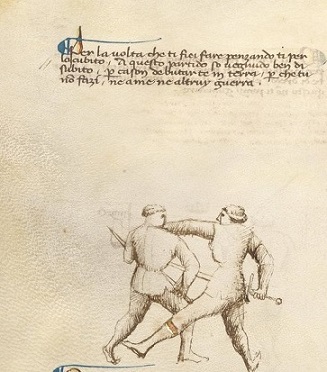 Per la volta che ti fici fare penzando ti per
lo cubito, A questo partido so vegnudo ben di
subito, ꝑ cason de butar te in terra, ꝑ che tu
no fazi, ne a me ne altruy guerra.